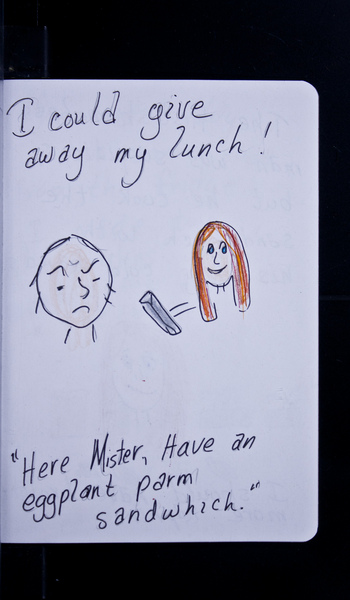 I could give
away my lunch!
"Here Mister, Have an
eggplant parm
sandwhich."